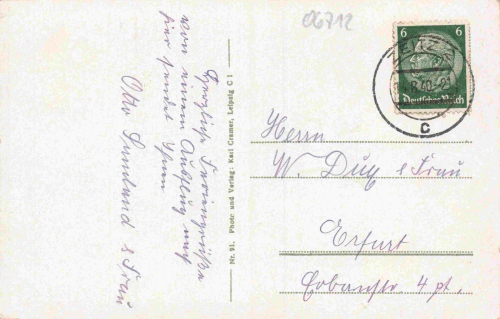 06712
Herzliche Feriengrüße
von einem Ausflug nach
hier sendet Ihnen
Otto & Frau
Nr. 91. Photo und Verlag: Karl Cramer, Leipzig C 1
6 6
Deutsches Reich
ZEITZ
c
Herrn
W. & Frau
Erfurt
4 pt.